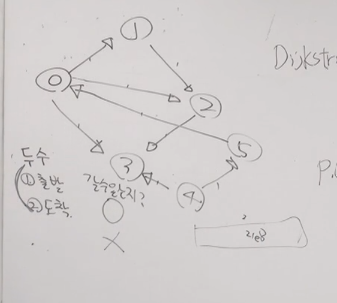 ①
Dijkstr
⓪
②
⑤
두수
③
①출발
갈수있는지?
④
②도착
○
X